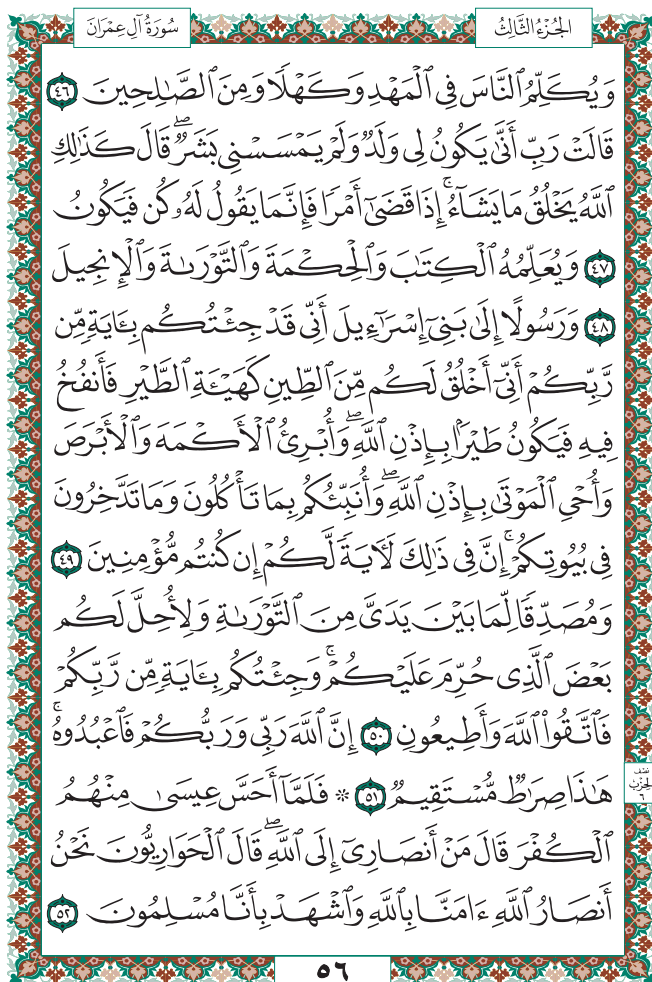 سُورَةُ آلِ عِمْرَان
الجُزْءُ الثَّالِثُ
وَيُكَلِّمُ ٱلنَّاسَ فِي ٱلْمَهْدِ وَكَهْلًا وَمِنَ ٱلصَّٰلِحِينَ ٤٦
قَالَتْ رَبِّ أَنَّىٰ يَكُونُ لِي وَلَدٌ وَلَمْ يَمْسَسْنِي بَشَرٌ ۖ قَالَ كَذَٰلِكِ
ٱللَّهُ يَخْلُقُ مَا يَشَآءُ ۚ إِذَا قَضَىٰٓ أَمْرًا فَإِنَّمَا يَقُولُ لَهُۥ كُن فَيَكُونُ
٤٧ وَيُعَلِّمُهُ ٱلْكِتَٰبَ وَٱلْحِكْمَةَ وَٱلتَّوْرَىٰةَ وَٱلْإِنجِيلَ
٤٨ وَرَسُولًا إِلَىٰ بَنِىٓ إِسْرَٰٓءِيلَ أَنِّى قَدْ جِئْتُكُم بِـَٔايَةٍ مِّن
رَّبِّكُمْ أَنِّىٓ أَخْلُقُ لَكُم مِّنَ ٱلطِّينِ كَهَيْـَٔةِ ٱلطَّيْرِ فَأَنفُخُ
فِيهِ فَيَكُونُ طَيْرًۢا بِإِذْنِ ٱللَّهِ ۖ وَأُبْرِئُ ٱلْأَكْمَهَ وَٱلْأَبْرَصَ
وَأُحْىِ ٱلْمَوْتَىٰ بِإِذْنِ ٱللَّهِ ۖ وَأُنَبِّئُكُم بِمَا تَأْكُلُونَ وَمَا تَدَّخِرُونَ
فِى بُيُوتِكُمْ ۚ إِنَّ فِى ذَٰلِكَ لَـَٔايَةً لَّكُمْ إِن كُنتُم مُّؤْمِنِينَ ٤٩
وَمُصَدِّقًا لِّمَا بَيْنَ يَدَىَّ مِنَ ٱلتَّوْرَىٰةِ وَلِأُحِلَّ لَكُم
بَعْضَ ٱلَّذِى حُرِّمَ عَلَيْكُمْ ۚ وَجِئْتُكُم بِـَٔايَةٍ مِّن رَّبِّكُمْ
فَٱتَّقُوا۟ ٱللَّهَ وَأَطِيعُونِ ٥٠ إِنَّ ٱللَّهَ رَبِّى وَرَبُّكُمْ فَٱعْبُدُوهُ ۚ
هَٰذَا صِرَٰطٌ مُّسْتَقِيمٌ ٥١ ۞ فَلَمَّآ أَحَسَّ عِيسَىٰ مِنْهُمُ
ٱلْكُفْرَ قَالَ مَنْ أَنصَارِىٓ إِلَى ٱللَّهِ ۖ قَالَ ٱلْحَوَارِيُّونَ نَحْنُ
أَنصَارُ ٱللَّهِ ءَامَنَّا بِٱللَّهِ وَٱشْهَدْ بِأَنَّا مُسْلِمُونَ ٥٢
نصف
الحزب
٦
٥٦